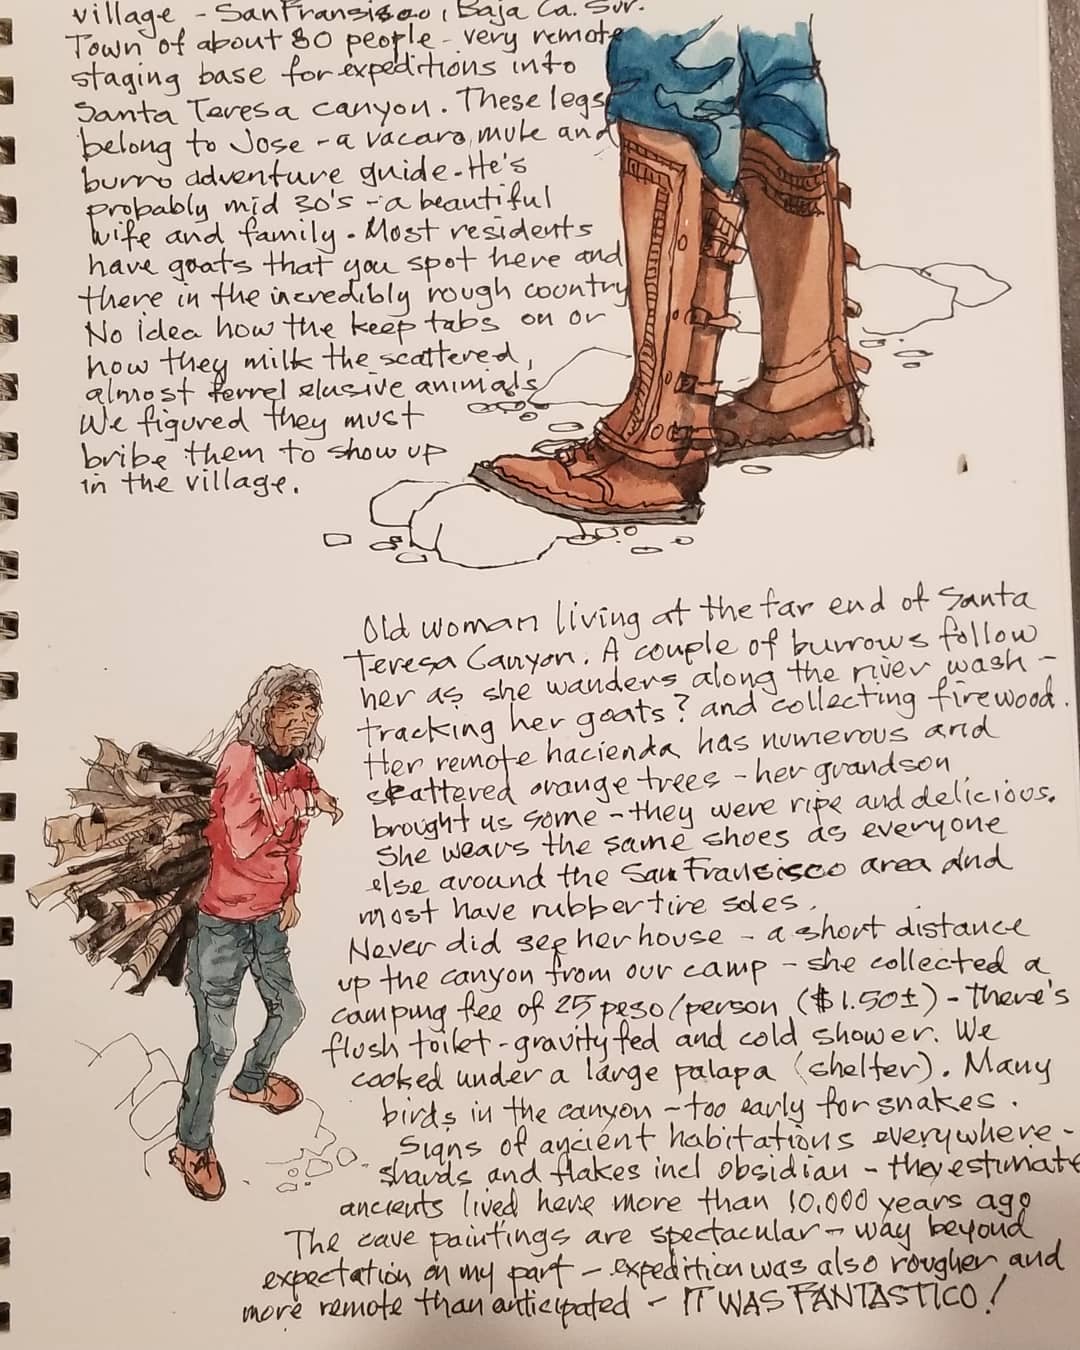 village - SanFransisco, Baja Ca. Sur.
Town of about 80 people - very remote
staging base for expeditions into
Santa Teresa canyon. These legs
belong to Jose - a vacaro, mule and
burro adventure guide. He's
probably mid 30's - a beautiful
wife and family. Most residents
have goats that you spot here and
there in the incredibly rough country
No idea how the keep tabs on or
how they milk the scattered,
almost ferrel elusive animals
We figured they must
bribe them to show up
in the village.
Old woman living at the far end of Santa
Teresa Canyon. A couple of burrows follow
her as she wanders along the river wash -
tracking her goats? and collecting firewood.
Her remote hacienda has numerous and
skattered orange trees - her grandson
brought us some - they were ripe and delicious.
She wears the same shoes as everyone
else around the San Fransisco area and
most have rubber tire soles.
Never did see her house - a short distance
up the canyon from our camp - she collected a
camping fee of 25 peso/person ($1.50±) - There's
flush toilet - gravity fed and cold shower. We
cooked under a large palapa (shelter). Many
birds in the canyon - too early for snakes.
Signs of ancient habitations everywhere -
shards and flakes incl obsidian - they estimate
ancients lived here more than 10,000 years ago
The cave paintings are spectacular - way beyond
expectation on my part - expedition was also rougher and
more remote than anticipated - IT WAS FANTASTICO!